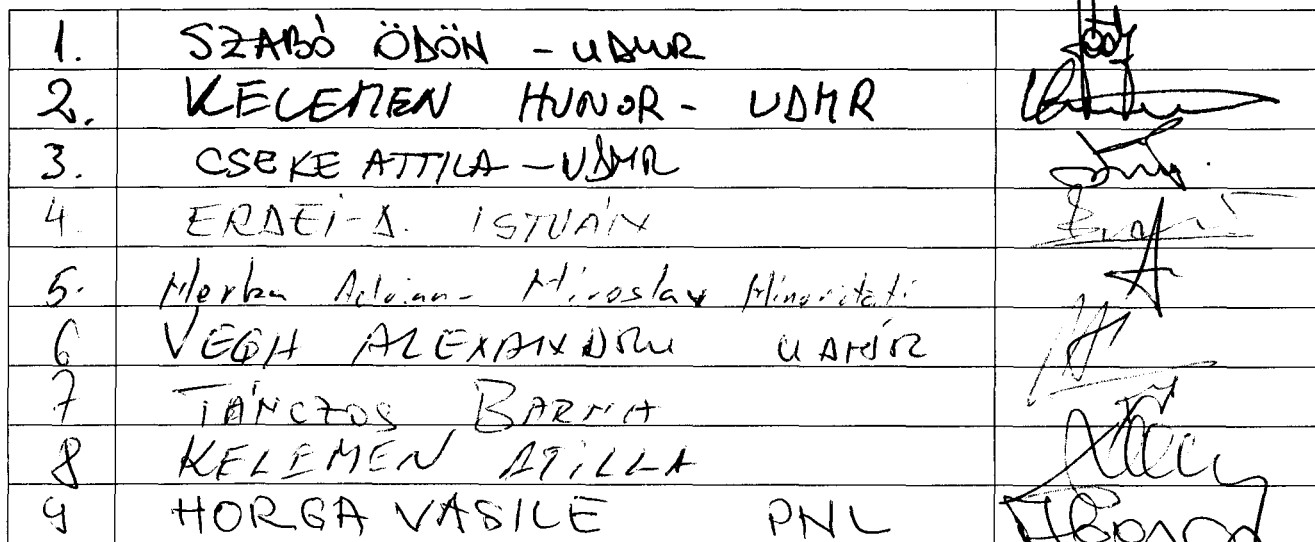 1. SZABÓ ÖDÖN - UDMR
2. KELEMEN HUNOR - UDMR
3. CSEKE ATTILA - UDMR
4. ERDEI-D. ISTVÁN
5. Merka Adrian - Miroslav Minoritati
6 VEGH ALEXANDRU UDMR
7 TÁNCZOS BARNA
8 KELEMEN ATILLA
9 HORGA VASILE PNL